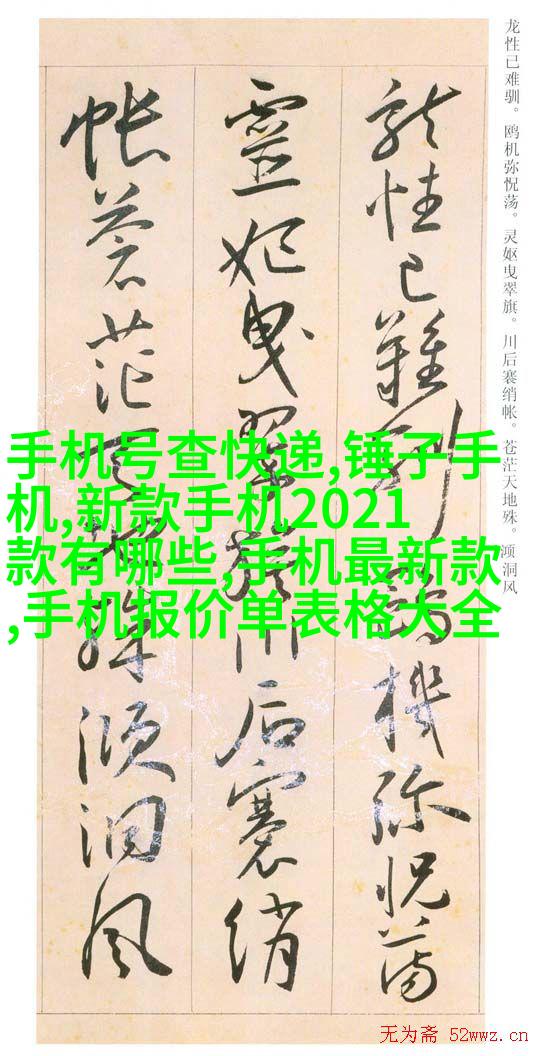 龙性已难驯。鸥机弥怳荡。灵妪曳翠旗。川后褰绡帐。苍茫天地殊。澒洞风
龍性已難馴鷗機弥怳蕩
靈妃曳翠旗川后褰綃
帳蒼茫天地殊澒洞風
手机号查快递,锤子手
机,新款手机2021
款有哪些,手机最新款
,手机报价单表格大全
无为斋 52wwz.cn